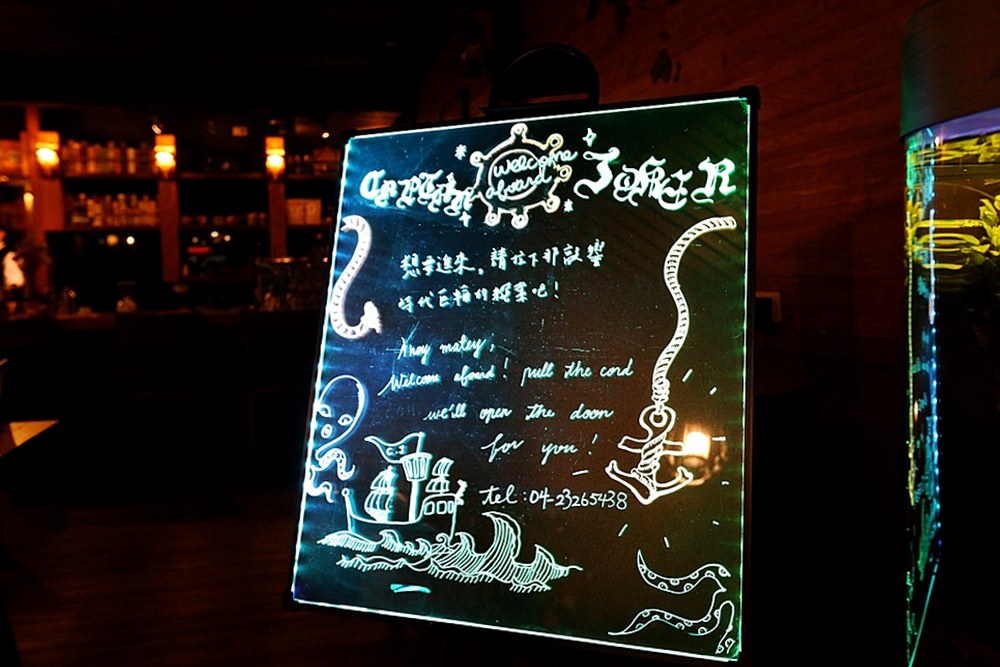 Captain
welcome
aboard
Joker
想要進來，請拉下那敲響
時代巨輪的繩索吧！
Ahoy matey,
Welcome aboard! pull the cord
we'll open the door
for you!
C.J
tel:04-23265438